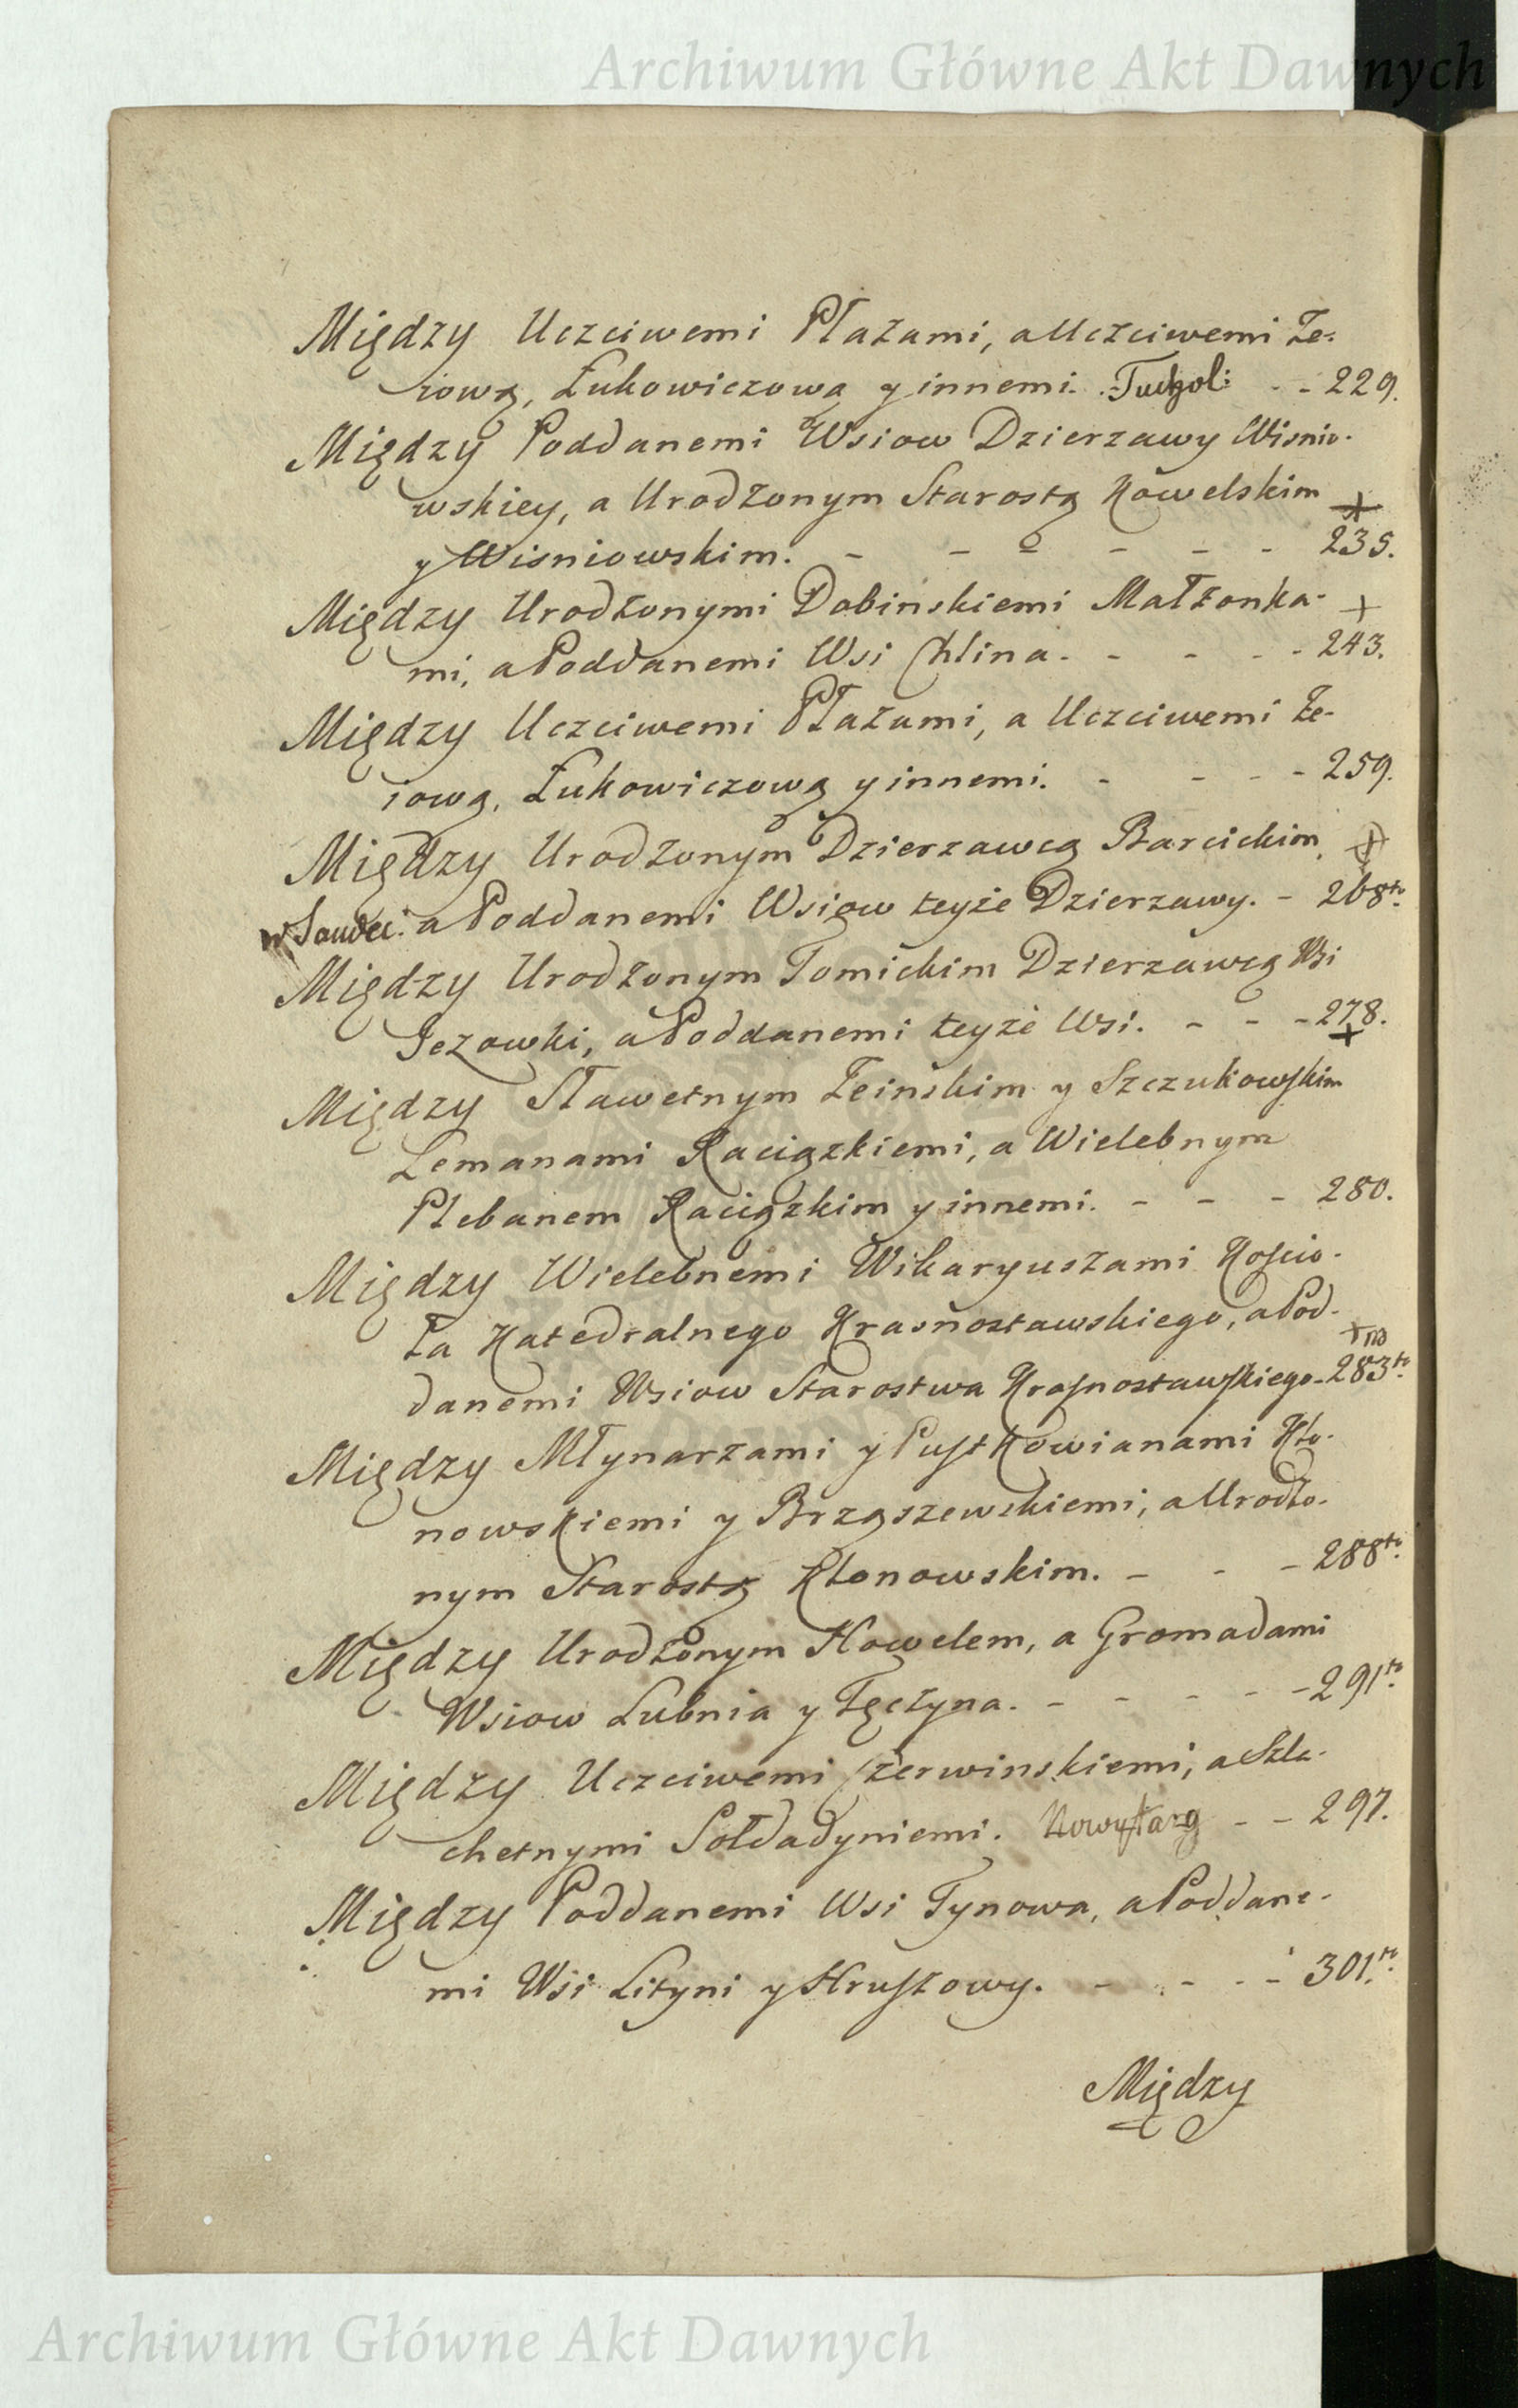 Archiwum Główne Akt Dawnych
Między Uczciwemi Płazami, a Uczciwemi Ze-
iową, Łukowiczową y innemi. Tuchol: - - 229.
Między Poddanemi Wsiow Dzierzawy Wisnio-
wskiey, a Urodzonym Starostą Kowelskim +
y Wisniowskim. - - - - - - 235.
Między Urodzonymi Dobinskiemi Małzonka- +
mi, a Poddanemi Wsi Chlina. - - - - 243.
Między Uczciwemi Płazami, a Uczciwemi Ze-
iową, Łukowiczową y innemi. - - - - 259.
Między Urodzonym Dzierzawcą Barcickim +
w Sandec: a Poddanemi Wsiow teyże Dzierzawy. - 268to.
Między Urodzonym Tomickim Dzierzawcą Wsi
Jezowki, a Poddanemi teyże Wsi. - - - 278.
+
Między Sławetnym Zeińskim y Szczukowskim
Lemanami Raciązkiemi, a Wielebnym
Plebanem Raciązkim y innemi. - - - 280.
Między Wielebnemi Wikaryuszami Koscio-
ła Katedralnego Krasnostawskiego, a Pod-
danemi Wsiow Starostwa Krasnostawskiego - 283to.
Między Młynarzami y Pustkowianami Kło-
nowskiemi y Brząszewskiemi, a Urodzo-
nym Starostą Kłonowskim. - - - 288to.
Między Urodzonym Kowelem, a Gromadami
Wsiow Lubnia y Tęczyna. - - - - - 291to.
Między Uczciwemi Czerwinskiemi, a Szla-
chetnymi Sołdadyniemi. Nowytarg - - 297.
Między Poddanemi Wsi Tynowa, a Poddane-
mi Wsi Lityni y Hruszowy. - - - - 301to.
Między
Archiwum Główne Akt Dawnych